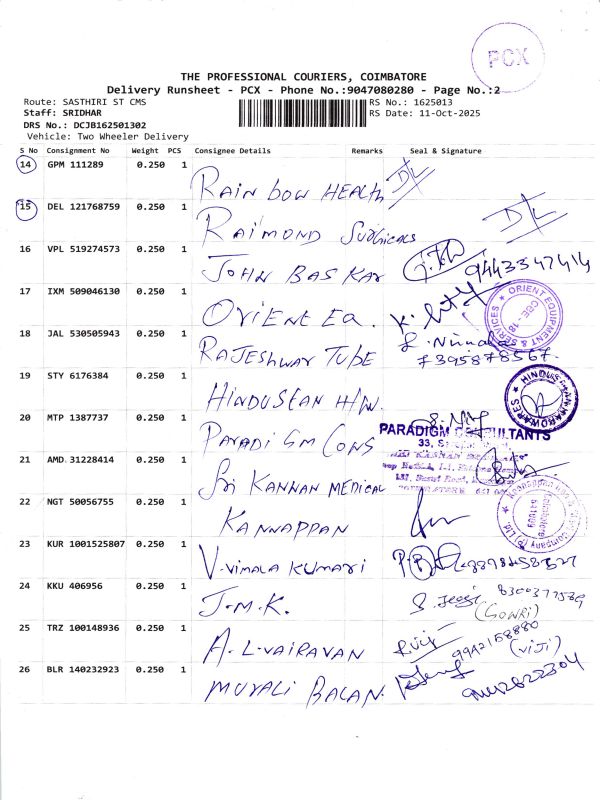 PCX
THE PROFESSIONAL COURIERS, COIMBATORE
Delivery Runsheet - PCX - Phone No.:9047080280 - Page No.:2
Route: SASTHIRI ST CMS
RS No.: 1625013
Staff: SRIDHAR
RS Date: 11-Oct-2025
DRS No.: DCJB162501302
Vehicle: Two Wheeler Delivery
S No Consignment No Weight PCS Consignee Details Remarks Seal & Signature
14 GPM 111289 0.250 1 RAIN BOW HEALTH D/L
15 DEL 121768759 0.250 1 RAIMOND SURGICALS D/L
16 VPL 519274573 0.250 1 JOHN BASKAR 9443347414
17 IXM 509046130 0.250 1 ORIENT EQ.
ORIENT EQUIPMENT & SERVICES CBE-18
18 JAL 530505943 0.250 1 RAJESHWAR TUBE
7395878567.
19 STY 6176384 0.250 1 HINDUSTAN H/W.
HINDUSTAN HARDWARES
20 MTP 1387737 0.250 1 PARADIGM CONS
PARADIGM CONSULTANTS
33,
21 AMD 31228414 0.250 1 SRI KANNAN MEDICAL
22 NGT 50056755 0.250 1 KANNAPPAN
23 KUR 1001525807 0.250 1 V.VIMALA KUMARI
24 KKU 406956 0.250 1 J.M.K. 8300377589
(GOWRI)
25 TRZ 100148936 0.250 1 A.L.VAIRAVAN 9942158880
(VIJI)
26 BLR 140232923 0.250 1 MURALI BALAN.